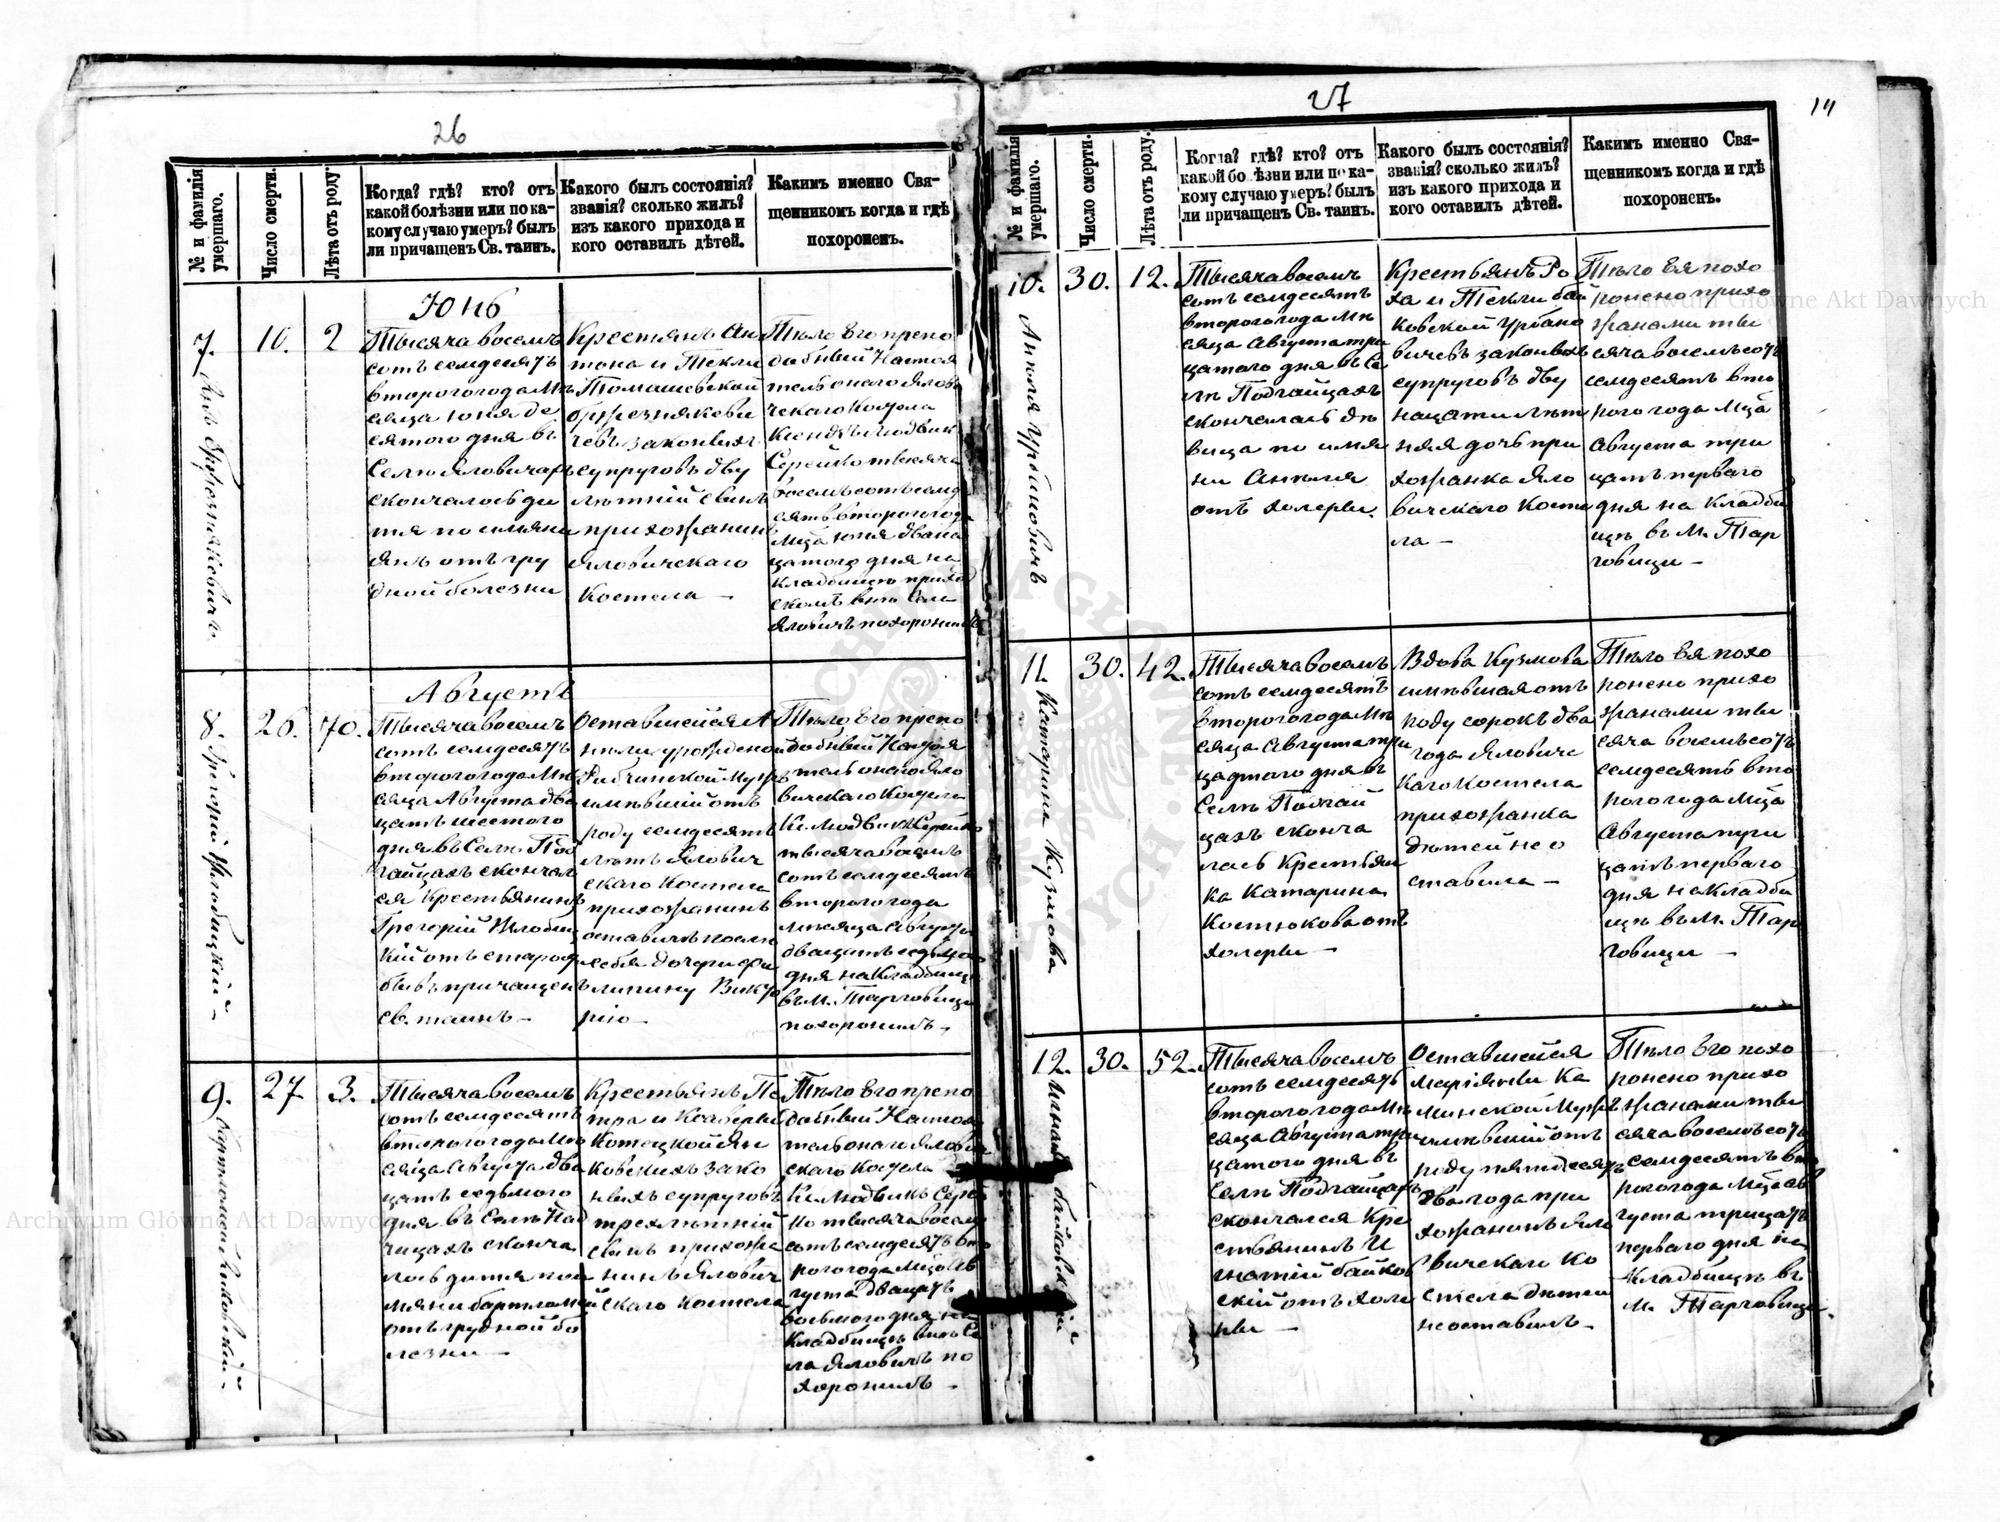 26
№ и фамилія умершаго.
Число смерти.
Лѣта отъ роду.
Когда? гдѣ? кто? отъ
какой болѣзни или по ка-
кому случаю умеръ? былъ
ли причащенъ Св. таинъ.
Какого былъ состоянія?
званія? сколько жилъ?
изъ какого прихода и
кого оставилъ дѣтей.
Какимъ именно Свя-
щенникомъ когда и гдѣ
похороненъ.
Юнь
7.
10.
2
Тысяча восемъ
сотъ семдесятъ
втораго года Мѣ
сяца юня де
сятого дня въ
Селѣ Яловичахъ
скончалось ди
тя по имяни
Янъ отъ гру
дной болезни
Крестянъ Ан
тона и Текли
Томашевской
супруговъ дву
лѣтній сынъ
прихожанинъ
Яловичскаго
Костела —
Тѣло Его препо
добный Настоя
тель онаго Ялов
чскаго Костела
Ксендзъ Людвик
тысяча
восемьсотъ семд
сятъ втораго года
Мца юня двана
цатого дня на
кладбищѣ прихо
Яловичъ похоронилъ
Августъ
8.
Грегорій
26.
70.
Тысяча восемъ
сотъ семдесятъ
втораго года Мѣ
сяца Августа два
цать шестого
дня въ Селѣ Под
гайцахъ скончал
ся Крестьянинъ
Грегорій
кій отъ старос
бывъ причащенъ
св. таинъ —
Оставшейся А
нели урожденой
Рибчинской Мужъ
имѣвшій отъ
роду семдесятъ
лѣтъ Ялович
скаго Костела
прихожанинъ
оставилъ послѣ
себя дочери
Викто
рію —
Тѣло Его препо
добный Настоя
тель онаго Яло
вичскаго Костела
Кс Людвикъ
тысяча восемъ
сотъ семдесятъ
втораго года
мѣсяца Августа
двацать седьмого
дня на Кладбищѣ
въ М. Тарговицѣ
похоронилъ —
9.
Бартломей Янковскій
27
3.
Тысяча восемъ
сотъ семдесятъ
втораго года Мѣ
сяца Августа два
цать седьмого
дня въ Селѣ
скончалось дитя по и
мяни Бартломей
отъ грудной бо
лезни —
Крестьянъ Пе
тра и
Котецкой Ян
ковскихъ зако
ныхъ супруговъ
трехлѣтній
сынъ прихожа
нинъ Ялович
скаго Костела
Тѣло Его препо
добный Настоя
тель онаго Ялови
скаго Костела
Кс Людвикъ
тысяча восем
сотъ семдесятъ вто
рого года Мца Ав
густа двацать
восьмого дня на
Кладбищѣ
ла Яловичъ по
хоронилъ —
27
14
№ и фамилія умершаго.
Число смерти.
Лѣта отъ роду.
Когда? гдѣ? кто? отъ
какой болѣзни или по ка-
кому случаю умеръ? былъ
ли причащенъ Св. таинъ.
Какого былъ состоянія?
званія? сколько жилъ?
изъ какого прихода и
кого оставилъ дѣтей.
Какимъ именно Свя-
щенникомъ когда и гдѣ
похороненъ.
10.
Анѣля Урбановичъ
30.
12.
Тысяча восемъ
сотъ семдесятъ
втораго года Мѣ
сяца Августа три
цатого дня въ Се
лѣ Подгайцахъ
скончалась дѣ
вица по имя
ни Анѣля
отъ холеры.
Крестьянъ Ро
ха и Текли Бай
ковской Урбано
вичевъ законыхъ
супруговъ дву
нацати лѣт
няя дочь при
хожанка Яло
вичскаго Косте
ла —
Тѣло Ея похо
ронено прихо
жанами ты
сяча восемьсотъ
семдесятъ вто
рого года Мца
Августа три
цать перваго
дня на Кладби
щѣ въ М. Тар
говици —
11.
Катарина Кузмова
30.
42.
Тысяча восемъ
сотъ семдесятъ
втораго года Мѣ
сяца Августа три
цатого дня въ
Селѣ Подгай
цахъ сконча
лась Крестьян
ка Катарина
Костюкова отъ
холеры —
Вдова Кузмова
имѣвшая отъ
роду сорокъ два
года Яловичс
каго Костела
прихожанка
дѣтей не о
ставила —
Тѣло Ея похо
ронено прихо
жанами ты
сяча восемьсотъ
семдесятъ вто
рого года Мца
Августа три
цать перваго
дня на Кладби
щѣ въ М. Тар
говици —
12.
Игнатій Байковскій
30.
52.
Тысяча восемъ
сотъ семдесятъ
втораго года Мѣ
сяца Августа три
цатого дня въ
Селѣ Подгайцахъ
скончался Кре
стьянинъ И
гнатій Байков
скій отъ холе
ры —
Оставшейся
Маріянны Ка
минской Мужъ
имѣвшій отъ
роду пятдесятъ
два года при
хожанинъ Яло
вичскаго Ко
стела дѣтей
не оставилъ —
Тѣло Его похо
ронено прихо
жанами ты
сяча восемьсотъ
семдесятъ вто
рого года Мца Ав
густа трицать
перваго дня на
Кладбищѣ въ
М. Тарговици.
Archiwum Główne Akt Dawnych
Archiwum Główne Akt Dawnych